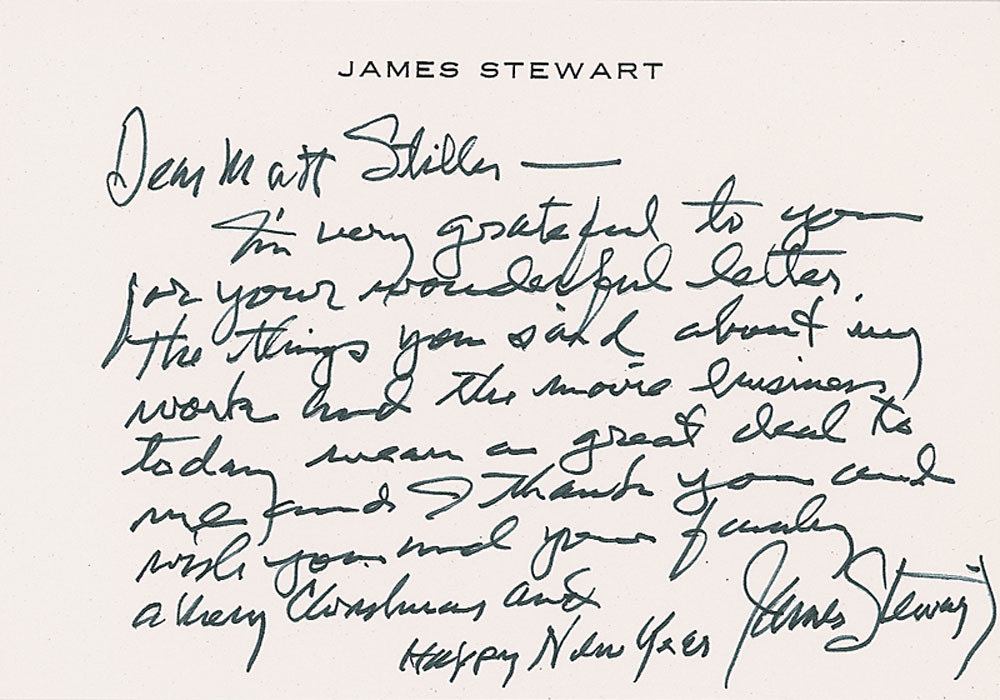 JAMES STEWART
Dear Matt Stiller —
I'm very grateful to you
for your wonderful letter.
The things you said about my
work and the movie business
today mean a great deal to
me and I thank you and
wish you and your family
a Merry Christmas and
Happy New Year James Stewart